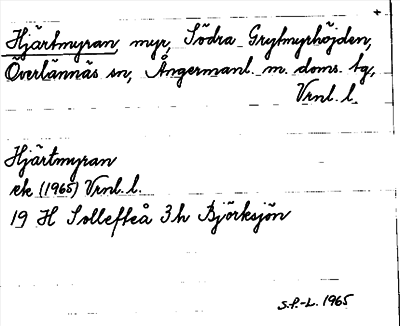 +
Hjärtmyran, myr, Södra Grytmyrhöjden,
Överlännäs sn, Ångermanl. m. doms. tg,
Vrnl. l.
Hjärtmyran
ek (1965) Vrnl. l.
19 H Sollefteå 3h Björksjön
S.F.-L. 1965